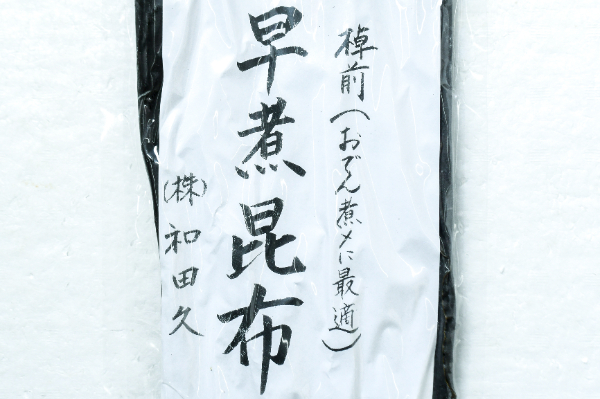 棹前(おでん煮〆に最適)
早煮昆布
(株)和田久